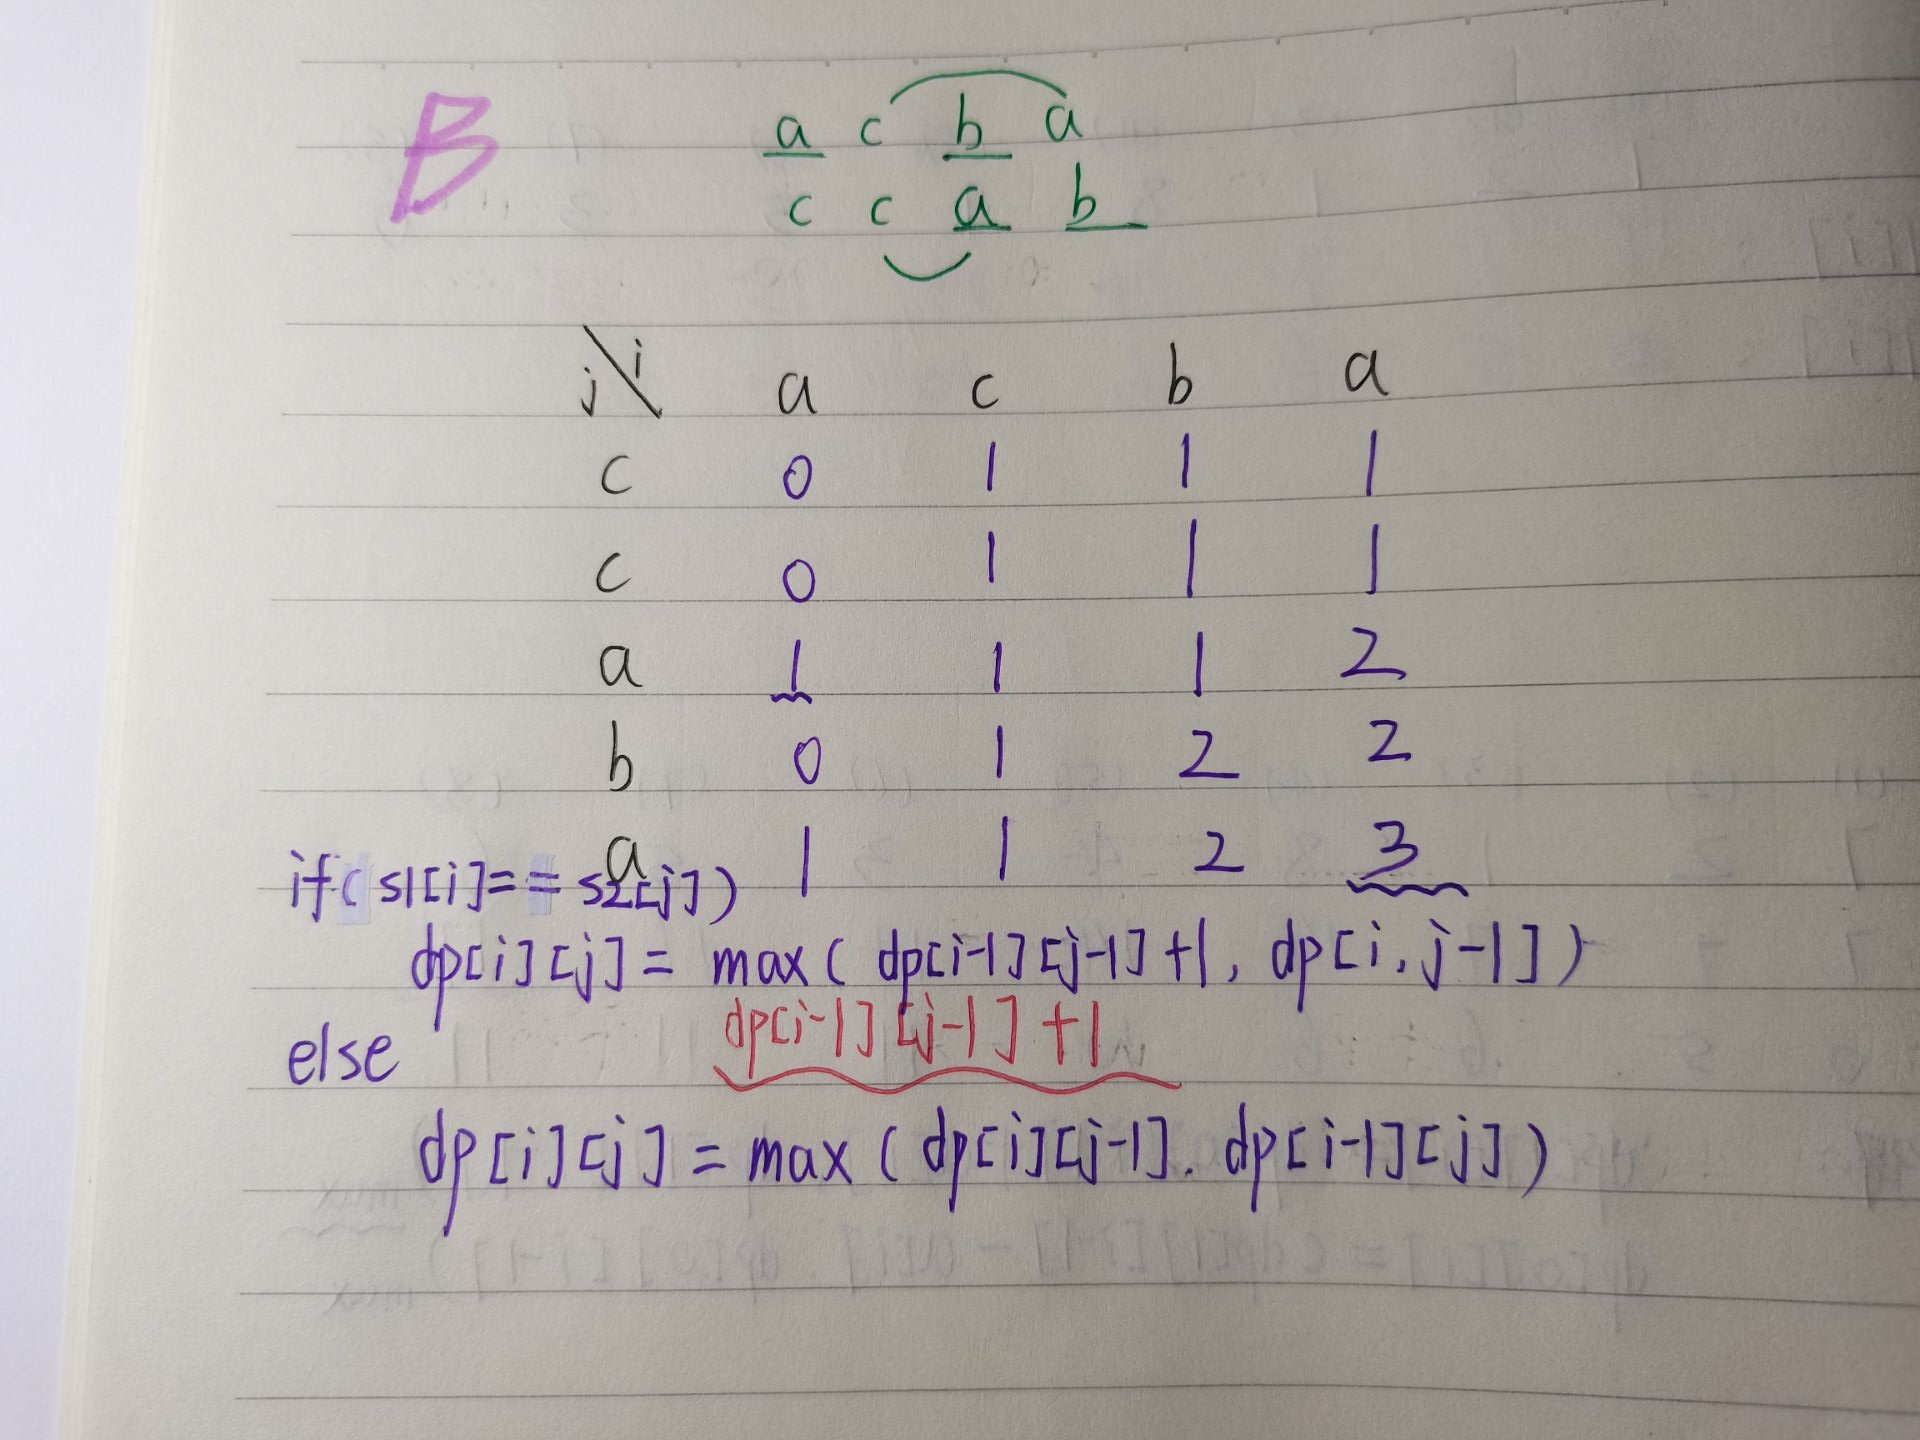 B
a c b a
c c a b
j \ i a c b a
c 0 1 1 1
c 0 1 1 1
a 1 1 1 2
b 0 1 2 2
a 1 1 2 3
if( s1[i]== s2[j])
dp[i][j]= max( dp[i-1][j-1]+1, dp[i, j-1])
dp[i-1][j-1]+1
else
dp[i][j]=max( dp[i][j-1]. dp[i-1][j])